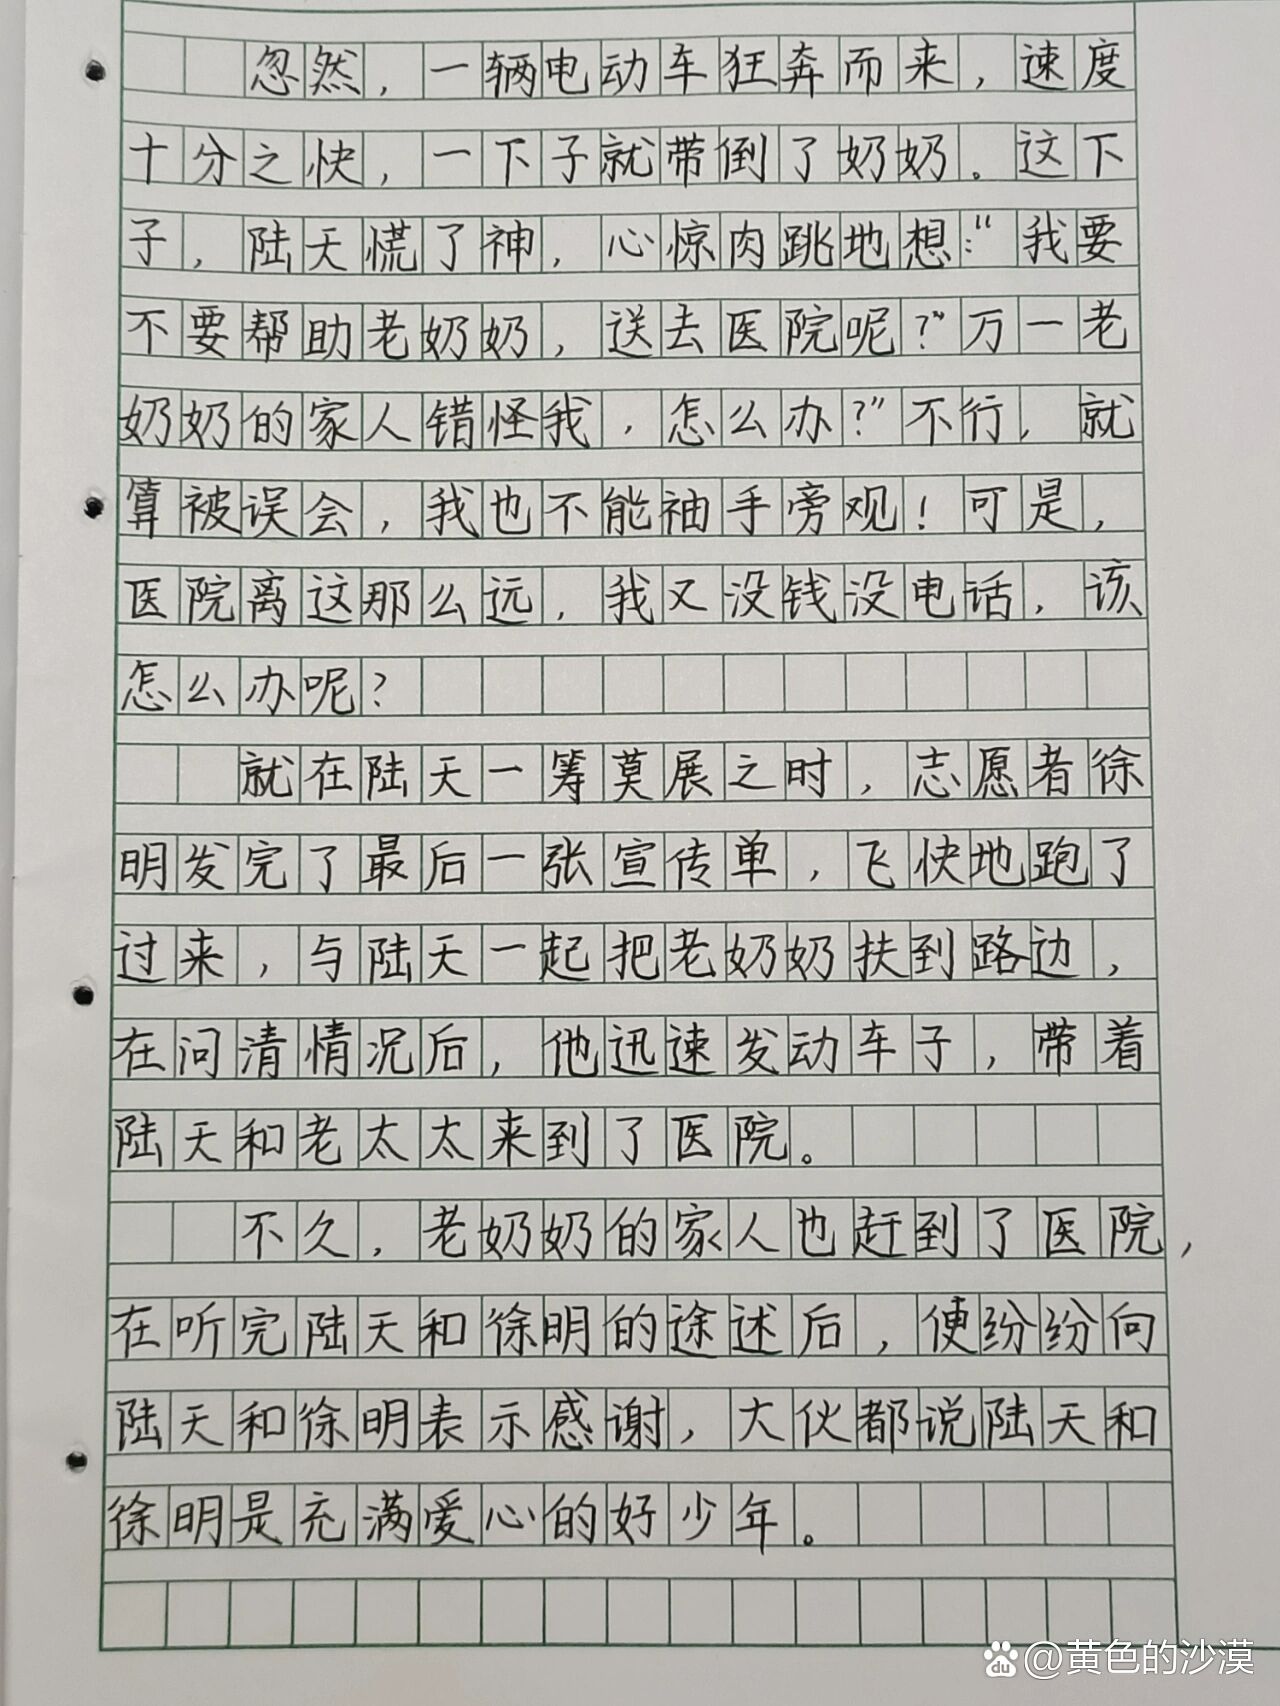 忽然，一辆电动车狂奔而来，速度
十分之快，一下子就带倒了奶奶。这下
子，陆天慌了神，心惊肉跳地想：“我要
不要帮助老奶奶，送去医院呢？”万一老
奶奶的家人错怪我，怎么办？”不行，就
算被误会，我也不能袖手旁观！可是，
医院离这那么远，我又没钱没电话，该
怎么办呢？
就在陆天一筹莫展之时，志愿者徐
明发完了最后一张宣传单，飞快地跑了
过来，与陆天一起把老奶奶扶到路边，
在问清情况后，他迅速发动车子，带着
陆天和老太太来到了医院。
不久，老奶奶的家人也赶到了医院，
在听完陆天和徐明的途述后，便纷纷向
陆天和徐明表示感谢，大伙都说陆天和
徐明是充满爱心的好少年。
du @黄色的沙漠